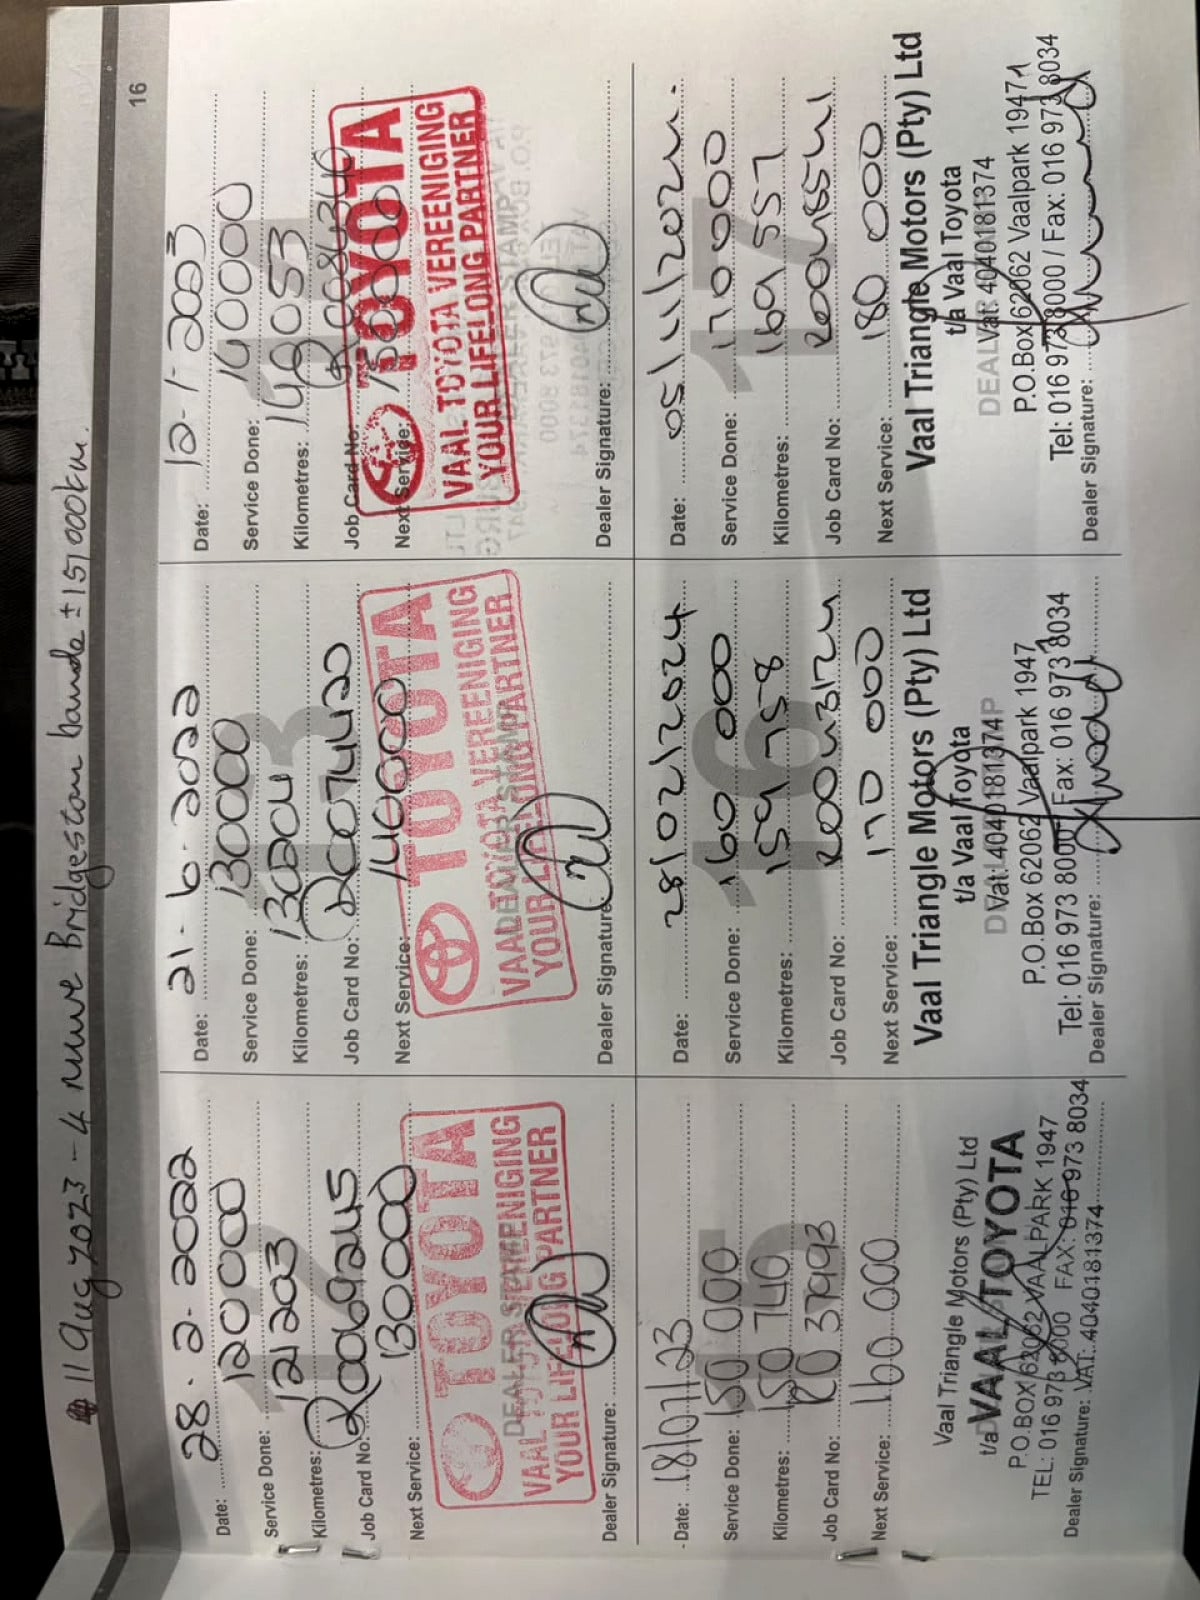 11 Aug 2023 - 4 nuwe Bridgeston bande ± 151000km.
16
12
Date: 28-2-2022
Service Done: 120000
Kilometres: 121203
Job Card No: R0069245
Next Service: 130000
TOYOTA
VAAL TOYOTA VEREENIGING
YOUR LIFELONG PARTNER
DEALER STAMP
Dealer Signature:
13
Date: 21-6-2022
Service Done: 130000
Kilometres: 130204
Job Card No: R0074420
Next Service: 140000
TOYOTA
VAAL TOYOTA VEREENIGING
YOUR LIFELONG PARTNER
DEALER STAMP
Dealer Signature:
14
Date: 12-1-2003
Service Done: 140000
Kilometres: 142053
Job Card No: R0084340
Next Service: 150000
TOYOTA
VAAL TOYOTA VEREENIGING
YOUR LIFELONG PARTNER
Dealer Signature:
15
Date: 18/07/23
Service Done: 150 000
Kilometres: 150 740
Job Card No: RO 37993
Next Service: 160 000
Vaal Triangle Motors (Pty) Ltd
t/a VAAL TOYOTA
P.O.BOX 62062 VAALPARK 1947
TEL: 016 973 8000 FAX: 016 973 8034
Dealer Signature: VAT: 4040181374
16
Date: 28/02/2024
Service Done: 160 000
Kilometres: 159 758
Job Card No: R0043124
Next Service: 170 000
Vaal Triangle Motors (Pty) Ltd
t/a Vaal Toyota
Vat: 4040181374
P.O.Box 62062 Vaalpark 1947
Tel: 016 973 8000 / Fax: 016 973 8034
Dealer Signature:
17
Date: 05/11/2024.
Service Done: 170000
Kilometres: 169 557
Job Card No: R0041554
Next Service: 180 000
Vaal Triangle Motors (Pty) Ltd
t/a Vaal Toyota
Vat: 4040181374
P.O.Box 62062 Vaalpark 1947
Tel: 016 973 8000 / Fax: 016 973 8034
Dealer Signature: